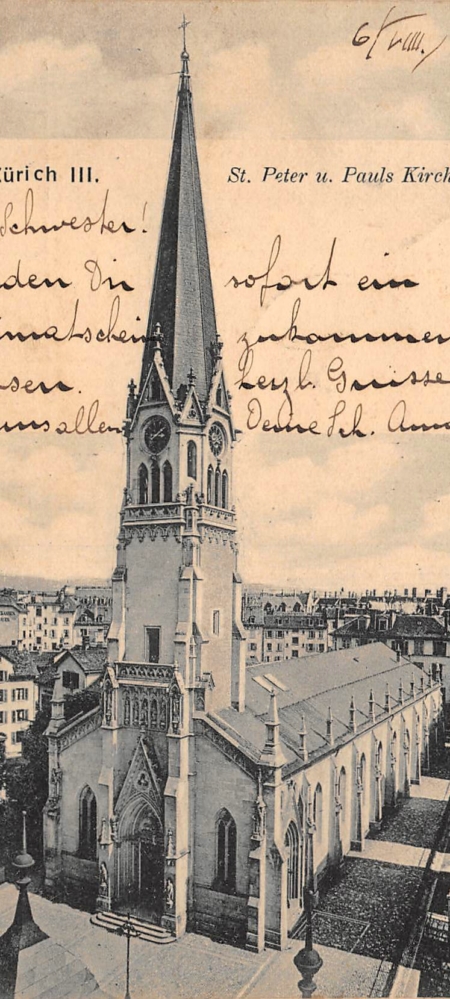 6/VIII.
ürich III. St. Peter u. Pauls Kirch
Schwester!
den Dir sofort ein
imatschein zukommen
sen. Herzl. Grüsse
uns allen Deine Sch. Ann